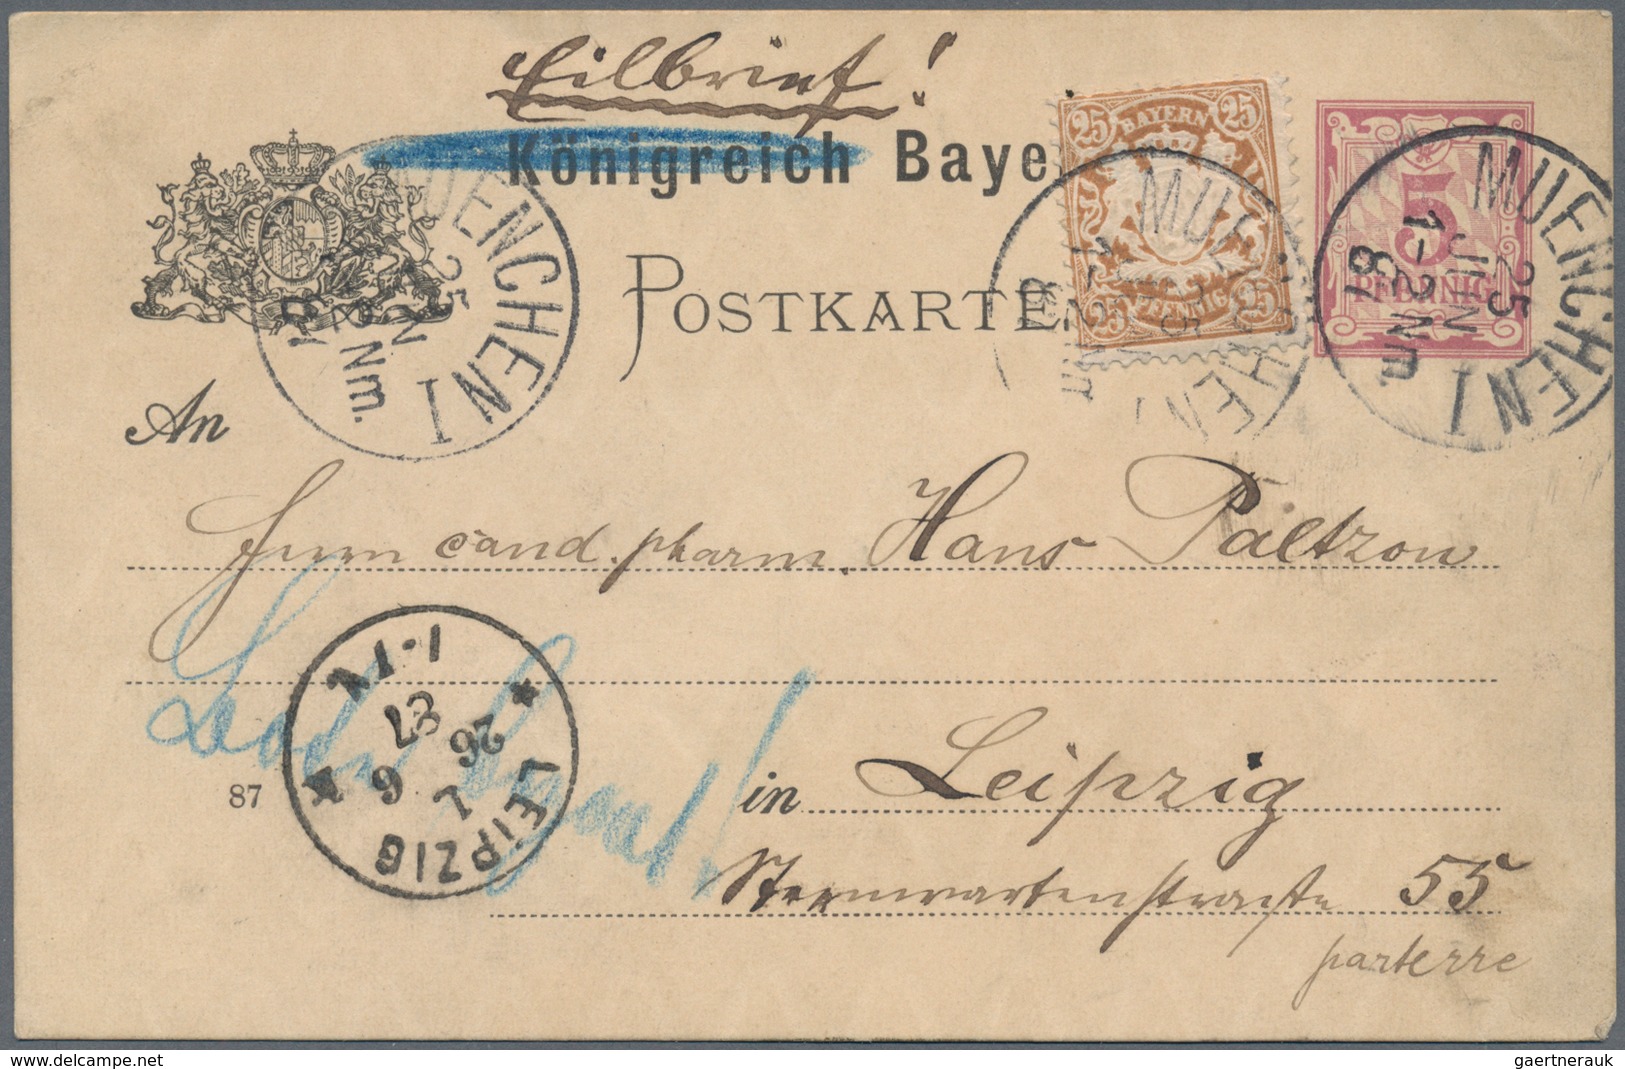 Eilbrief!
Königreich Baye
POSTKARTE
25 BAYERN 25
25 PFENNIG 25
5
PFENNIG
MUENCHEN I
25
JUN
1-2 Nm.
87
MUENCHEN I
25
JUN
1-2 Nm.
87
MUENCHEN I
An
Herrn cand. pharm. Hans Paltzow
LEIPZIG
1
26 6
87
in Leipzig
87
Sternwartenstrasse 55
parterre
www.delcampe.net
gaertnerauk